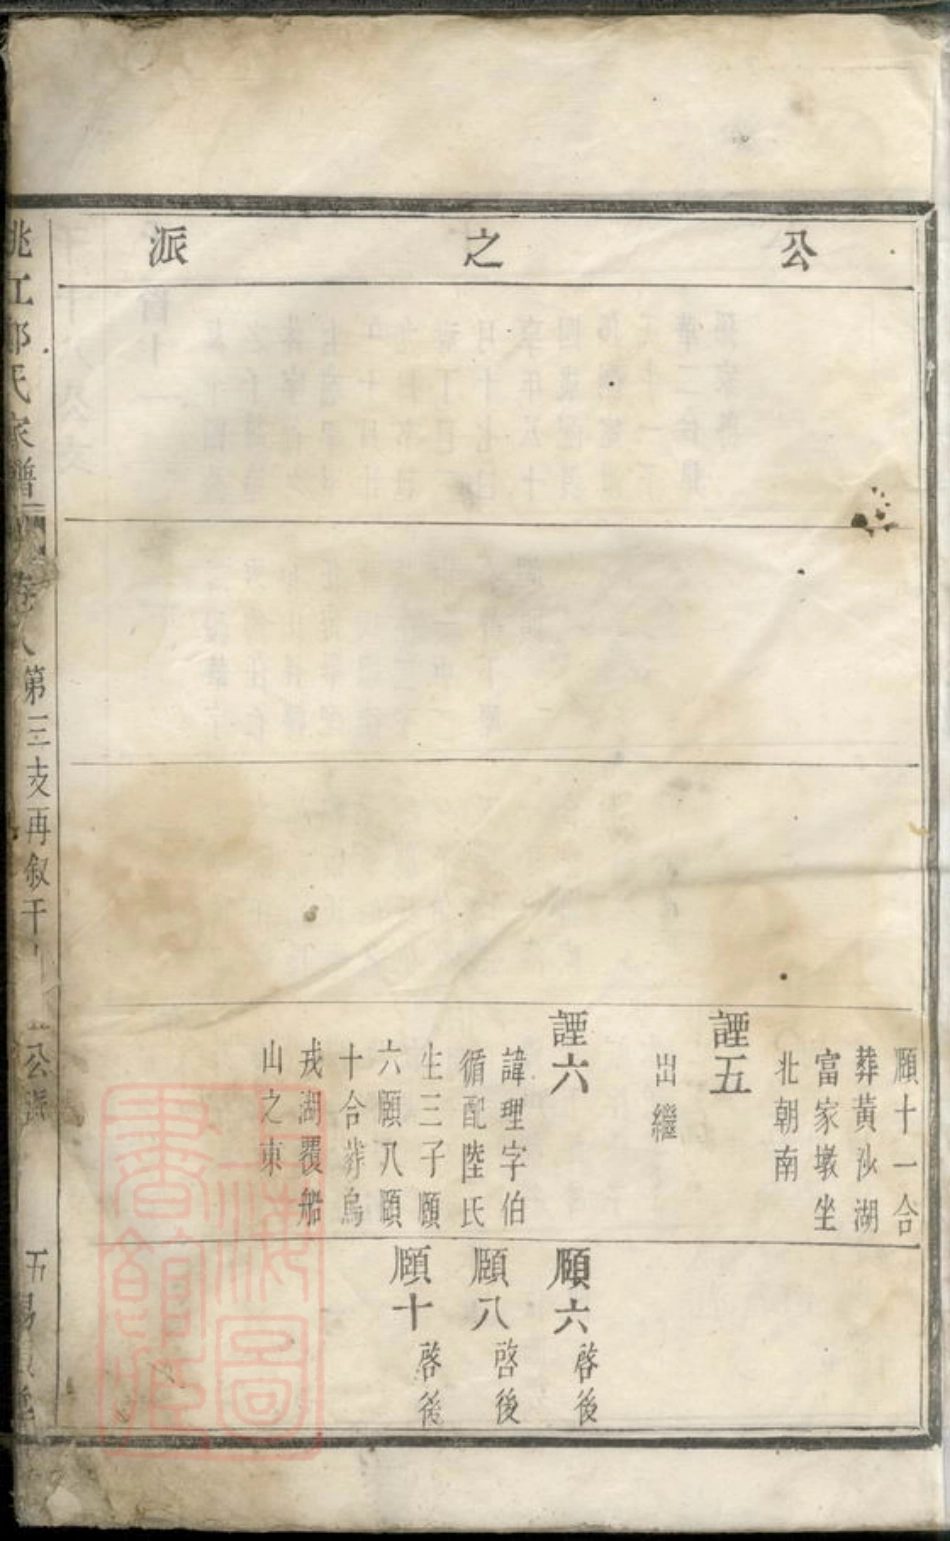 公之派
願十一合
葬黃沙湖
富家墩坐
北朝南
諲五
出繼
諲六
諱理字伯
循配陸氏
生三子願
六願八願
十合葬烏
戎湖覆船
山之東
願六
啓後
願八
啓後
願十
啓後
姚江邵氏家譜
卷八
第三支再叙干
公派
五